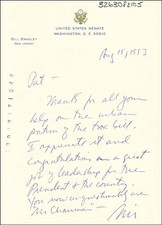 3263082105
BILL BRADLEY
NEW JERSEY
UNITED STATES SENATE
WASHINGTON, D.C. 20510
Aug 15, 1993
Thank for all your
help on the urban
portion of the tax bill.
I appreciate it and
congratulations on a great
job of leadership for the
President & the country.
You now unquestionably are
"Mr. Chairman" —
Bill